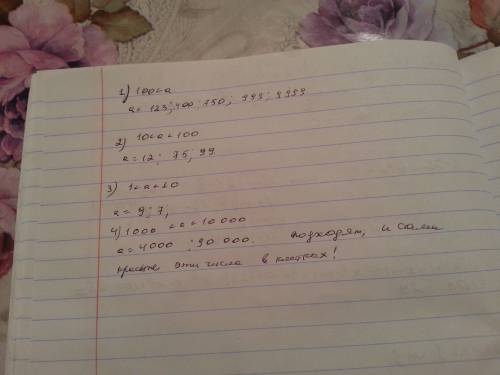 1) 100<a
a = 123; 400; 750; 993; 9999
2) 10<a<100
a = 12; 75; 99
3) 1<a<10
a = 9; 7;
4) 1000 <a<10 000
a = 4000 ; 90 000. подходят, и сами
эти числа в клетках!